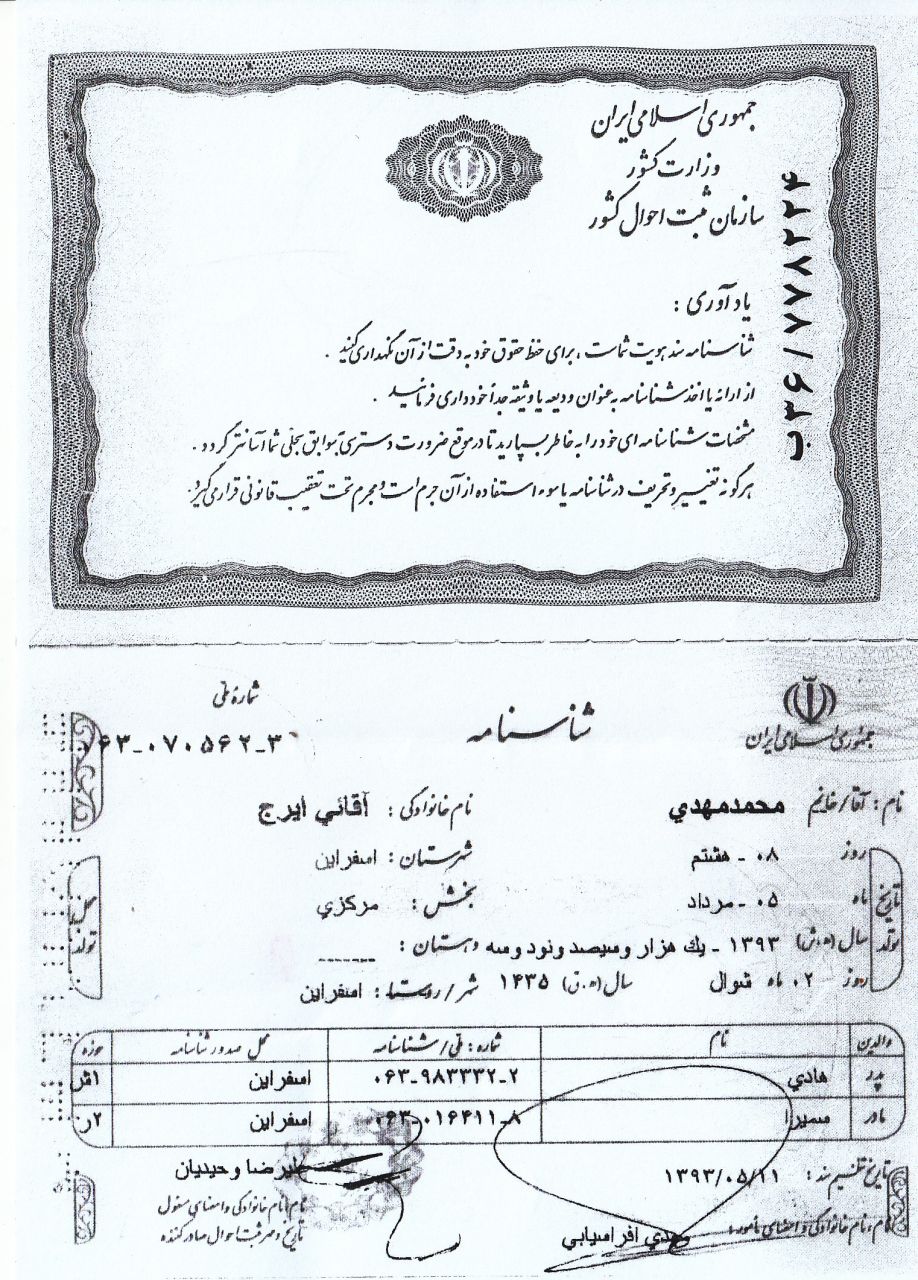 جمهوری اسلامی ایران
وزارت کشور
سازمان ثبت احوال کشور
ب۳۶/۷۷۸۲۲۴
یادآوری :
شناسنامه سند هویت شماست ، برای حفظ حقوق خود به دقت از آن نگهداری کنید .
از ارائه یا اخذ شناسنامه به عنوان ودیعه یا وثیقه جداً خودداری فرمائید .
مشخصات شناسنامه ای خود را به خاطر بسپارید تا در موقع ضرورت دسترسی بسوابق سجلی شما آسانتر گردد .
هرگونه تغییر و تحریف در شناسنامه یا سوء استفاده از آن جرم است و مجرم تحت تعقیب قانونی قرار می گیرد .
جمهوری اسلامی ایران
شناسنامه
شماره ملی
۰۶۳-۰۷۰۵۶۲-۳
نام : آقا/خانم محمدمهدي نام خانوادگی : آقائي ايرج
تاریخ تولد
محل تولد
روز ۰۸ - هشتم شهرستان : اسفراين
ماه ۰۵ - مرداد بخش : مرکزي
سال (ه.ش) ۱۳۹۳ - يك هزار و سيصد و نود و سه دهستان : ------
روز ۰۲ ماه شوال سال (ه.ق) ۱۴۳۵ شهر/روستا : اسفراين
والدین نام شماره : ملی/شناسنامه محل صدور شناسنامه حوزه
پدر هادي ۰۶۳-۹۸۳۳۳۲-۲ اسفراين
مادر سميرا ۰۶۳-۰۱۶۴۱۱-۸ اسفراين
تاریخ تنظیم سند : ۱۳۹۳/۰۵/۱۱ عليرضا وحيديان
نام و نام خانوادگی و امضای مأمور : مهدي افراسيابي
نام و نام خانوادگی و امضای مسئول
تاریخ و مهر ثبت احوال صادر کننده